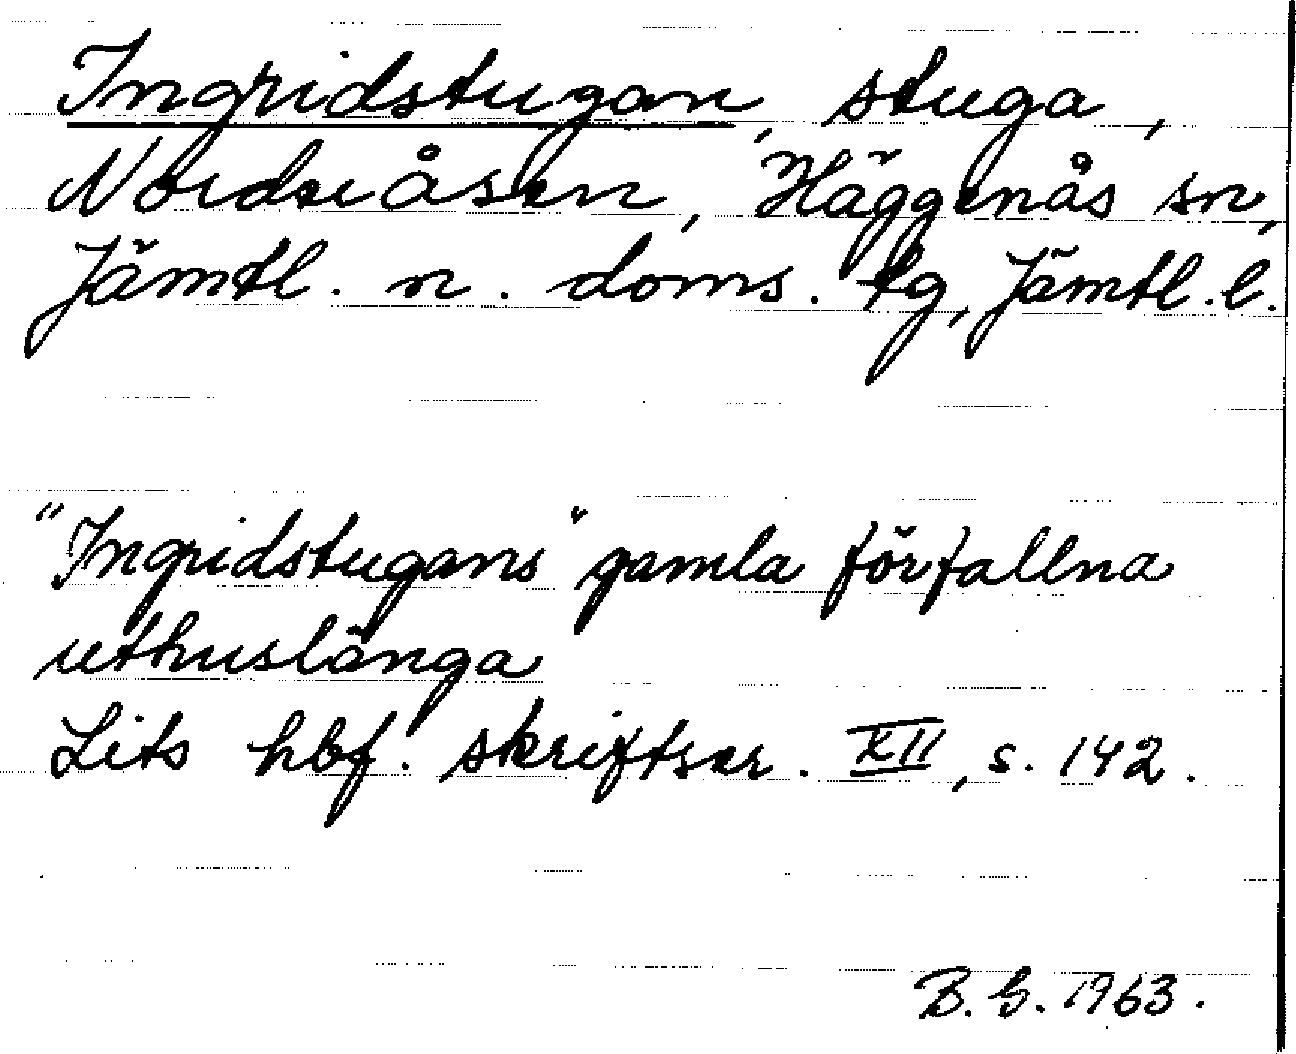 Ingridstugan, stuga,
Norderåsen, Häggenås sn,
Jämtl. n. doms. tg, Jämtl. l.
"Ingridstugans" gamla förfallna
uthuslänga
Lits hbf. skriftser. XII, s. 142.
B. G. 1963.